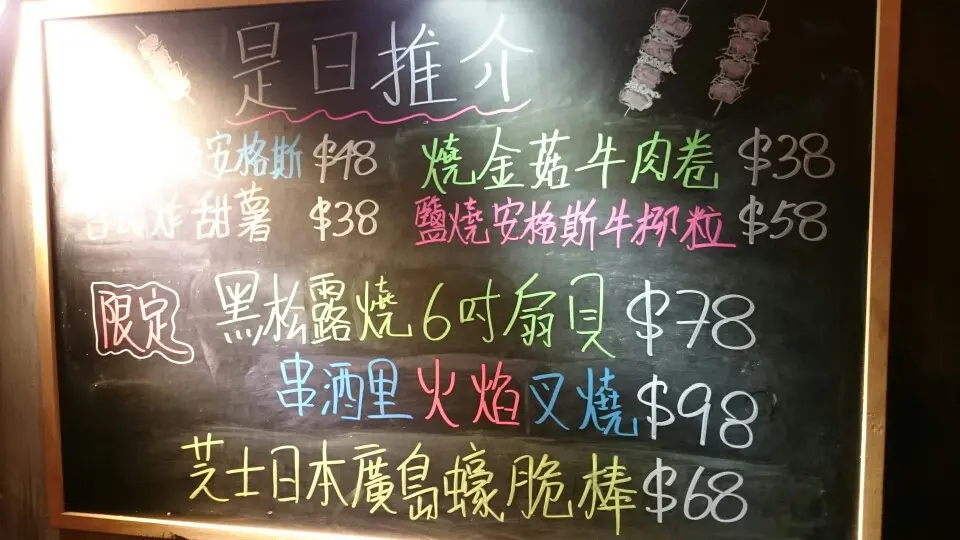 是日推介
安格斯 $48 燒金菇牛肉卷 $38
炸甜薯 $38 鹽燒安格斯牛柳粒 $58
限定 黑松露燒6吋扇貝 $78
串酒里火焰叉燒 $98
芝士日本廣島蠔脆棒 $68